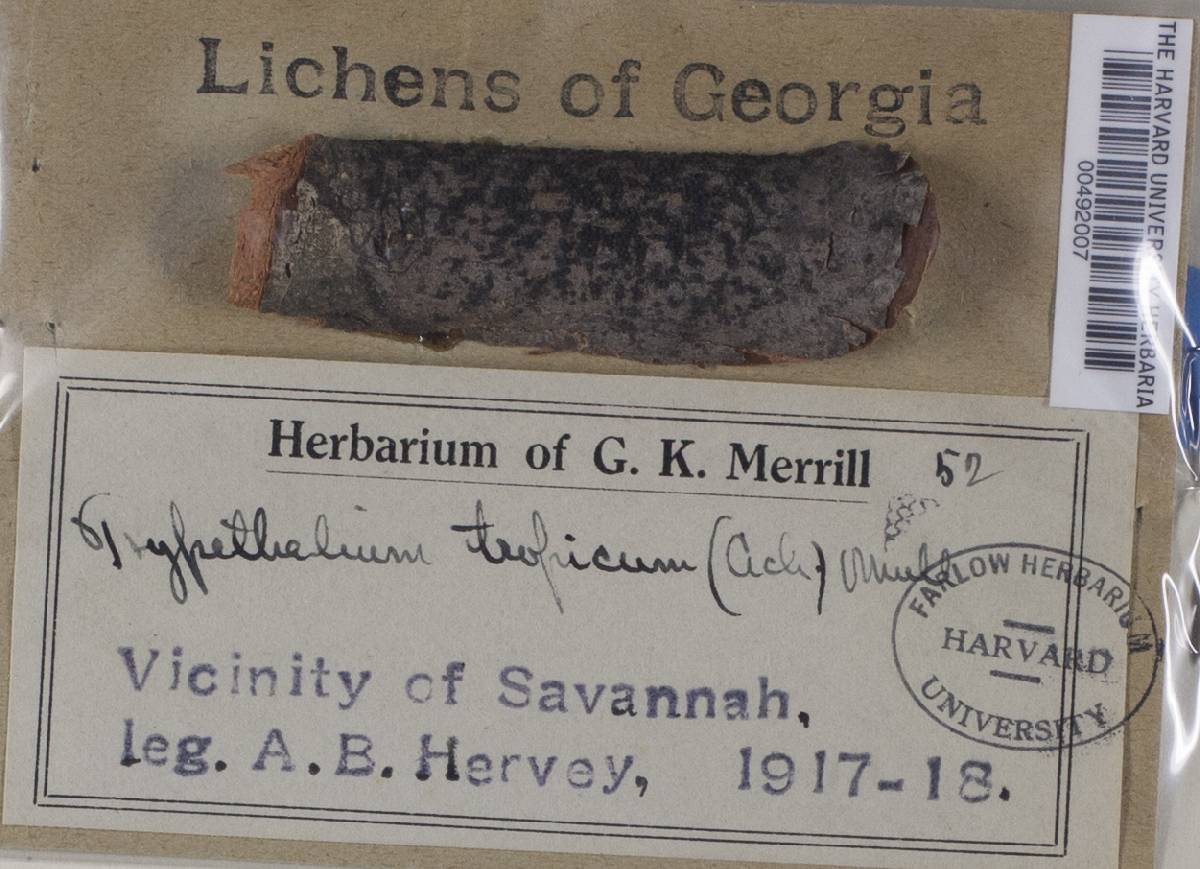 Lichens of Georgia
THE HARVARD UNIVERSITY HERBARIA
00492007
Herbarium of G. K. Merrill 52
Trypethelium tropicum (Ach) Müll
FARLOW HERBARIUM
HARVARD
UNIVERSITY
Vicinity of Savannah,
leg. A. B. Hervey, 1917-18.